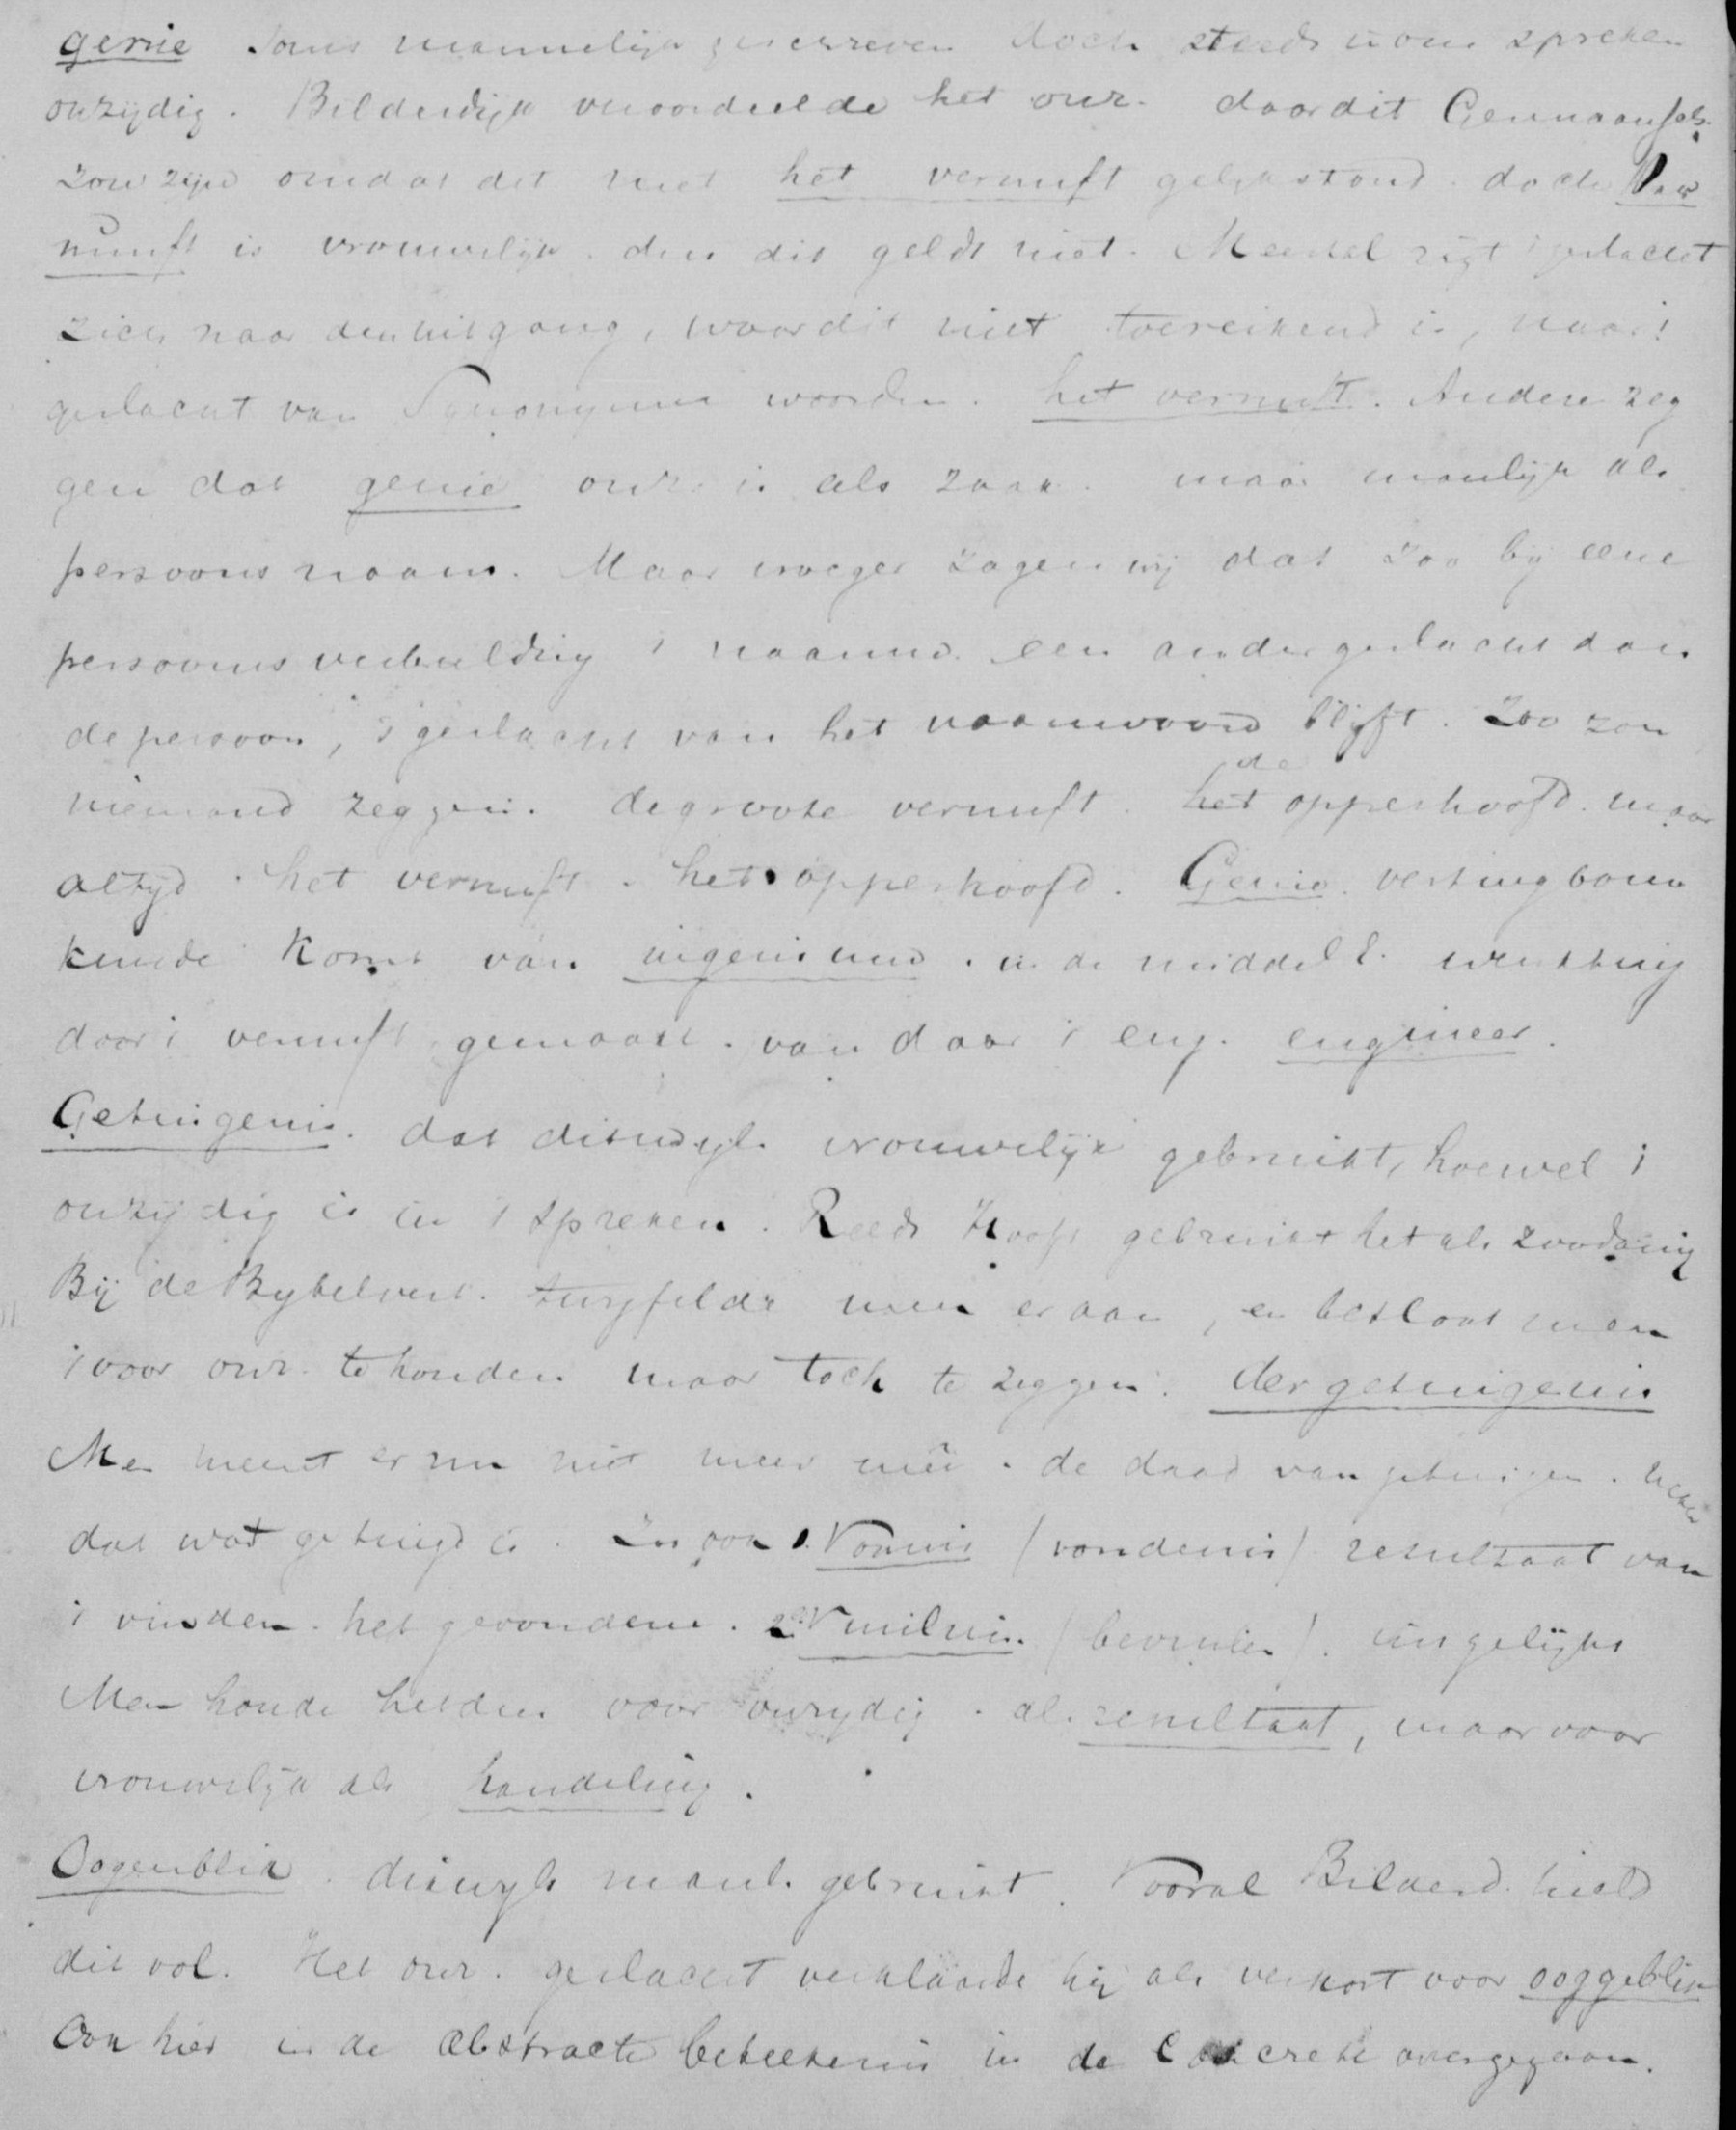 genie Soms mannelijk geschreven doch steeds in ons spreken
onzijdig. Bilderdijk veroordeelde het onz. daar dit Germaansch
zou zijn omdat dit met het vernuft gelijkstond. doch Ver
nunft is vrouwelijk. dus dit geldt niet. Meestal rigt 't geslacht
zich naar den uitgang, waar dit niet toereikend is, naar 't
geslacht van Synonyme woorden. het vernuft. Andere zeg
gen dat genie onz. is als zaak. maar manlijk als
persoonsnaam. Maar vroeger zagen wij dat zoo bij eene
persoonsverbeelding 't naamw. een ander geslacht dan
de persoon, 't geslacht van het naamwoord blijft. Zoo zou
niemand zeggen. de groote vernuft. het de opperhoofd. maar
altijd. het vernuft. het opperhoofd. Genie. vestingbouw
kunde komt van ingenium. in de middel E. werktuig
door 't vernuft gemaakt. van daar 't eng. engineer.
Getuigenis. dat dikwijls vrouwelijk gebruikt, hoewel 't
onzijdig is in 't spreken. Reeds Hooft gebruikt het als zoodanig
Bij de Bybelvert. twyfelde men er aan, en besloot men
't voor onz. te houden maar toch te zeggen. der getuigenis
Men meent er nu niet meer meê. de daad van getuigen.
dat wat getuigd is. Zoo ook 1. Vonnis (vondenis) resultaat van
't vinden. het gevondene. 2. Vuilnis. (bevuilen). insgelijks
Men houde beiden voor onzydig. als resultaat, maar voor
vrouwelijk als handeling.
Oogenblik. dikwyls manl. gebruikt. Vooral Bilderd. hield
dit vol. Het onz. geslacht verklaarde hij als verkort voor ooggeblik
Ook hier is de abstracte beteekenis in de concrete overgegaan.